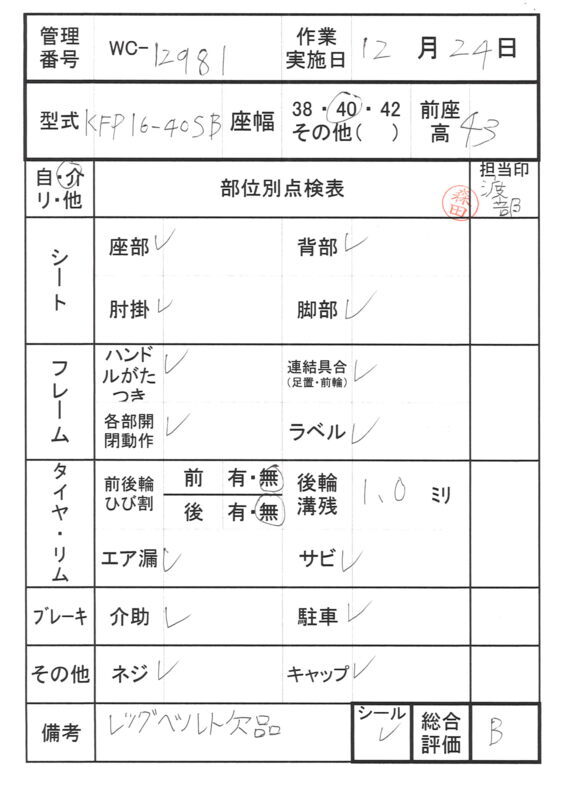 管理番号 WC-12981 作業実施日 12月24日
型式 KFP16-40SB 座幅 38・40・42 その他( ) 前座高 43
自・介リ・他 部位別点検表 担当印
森田 渡部
シート 座部 ✓ 背部 ✓
肘掛 ✓ 脚部 ✓
フレーム ハンドルがたつき ✓ 連結具合(足置・前輪) ✓
各部開閉動作 ✓ ラベル ✓
タイヤ・リム 前後輪ひび割 前 有・無 後輪溝残 1.0 ミリ
後 有・無
エア漏 ✓ サビ ✓
ブレーキ 介助 ✓ 駐車 ✓
その他 ネジ ✓ キャップ ✓
備考 レッグベルト欠品 シール ✓ 総合評価 B